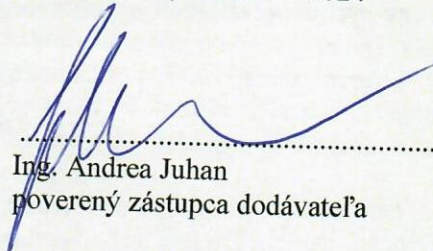 Ing. Andrea Juhan
poverený zástupca dodávateľa